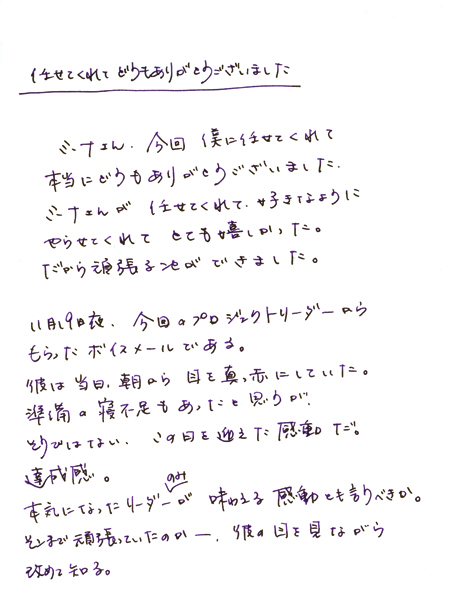 任せてくれてどうもありがとうございました
ミーナさん、今回 僕に任せてくれて
本当にどうもありがとうございました。
ミーナさんが 任せてくれて、好きなように
やらせてくれて とても嬉しかった。
だから頑張ることができました。
11月19日夜、今回のプロジェクトリーダーから
もらったボイスメールである。
彼は当日、朝から目を真っ赤にしていた。
準備の寝不足もあったと思うが、
そうではない、この日を迎えた感動だ。
達成感。
本気になったリーダーのみが 味わえる 感動とも言うべきか。
そこまで頑張っていたのかー、彼の目を見ながら
改めて知る。